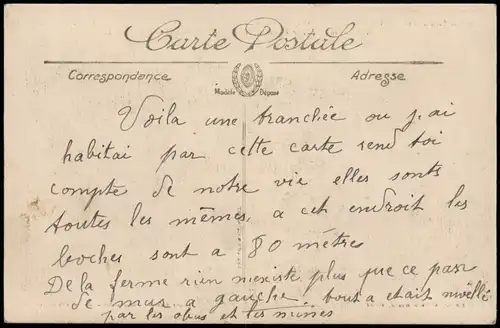 Carte Postale
Correspondance
Adresse
Modèle Déposé
Voila une tranchée ou j'ai
habitai par cette carte rend toi
compte de notre vie elles sonts
toutes les mêmes, a cet endroit les
boches sont a 80 métres
De la ferme rien n'existe plus que ce pan
de mur a gauche, tout a etait nivéllé
par les obus et les mines